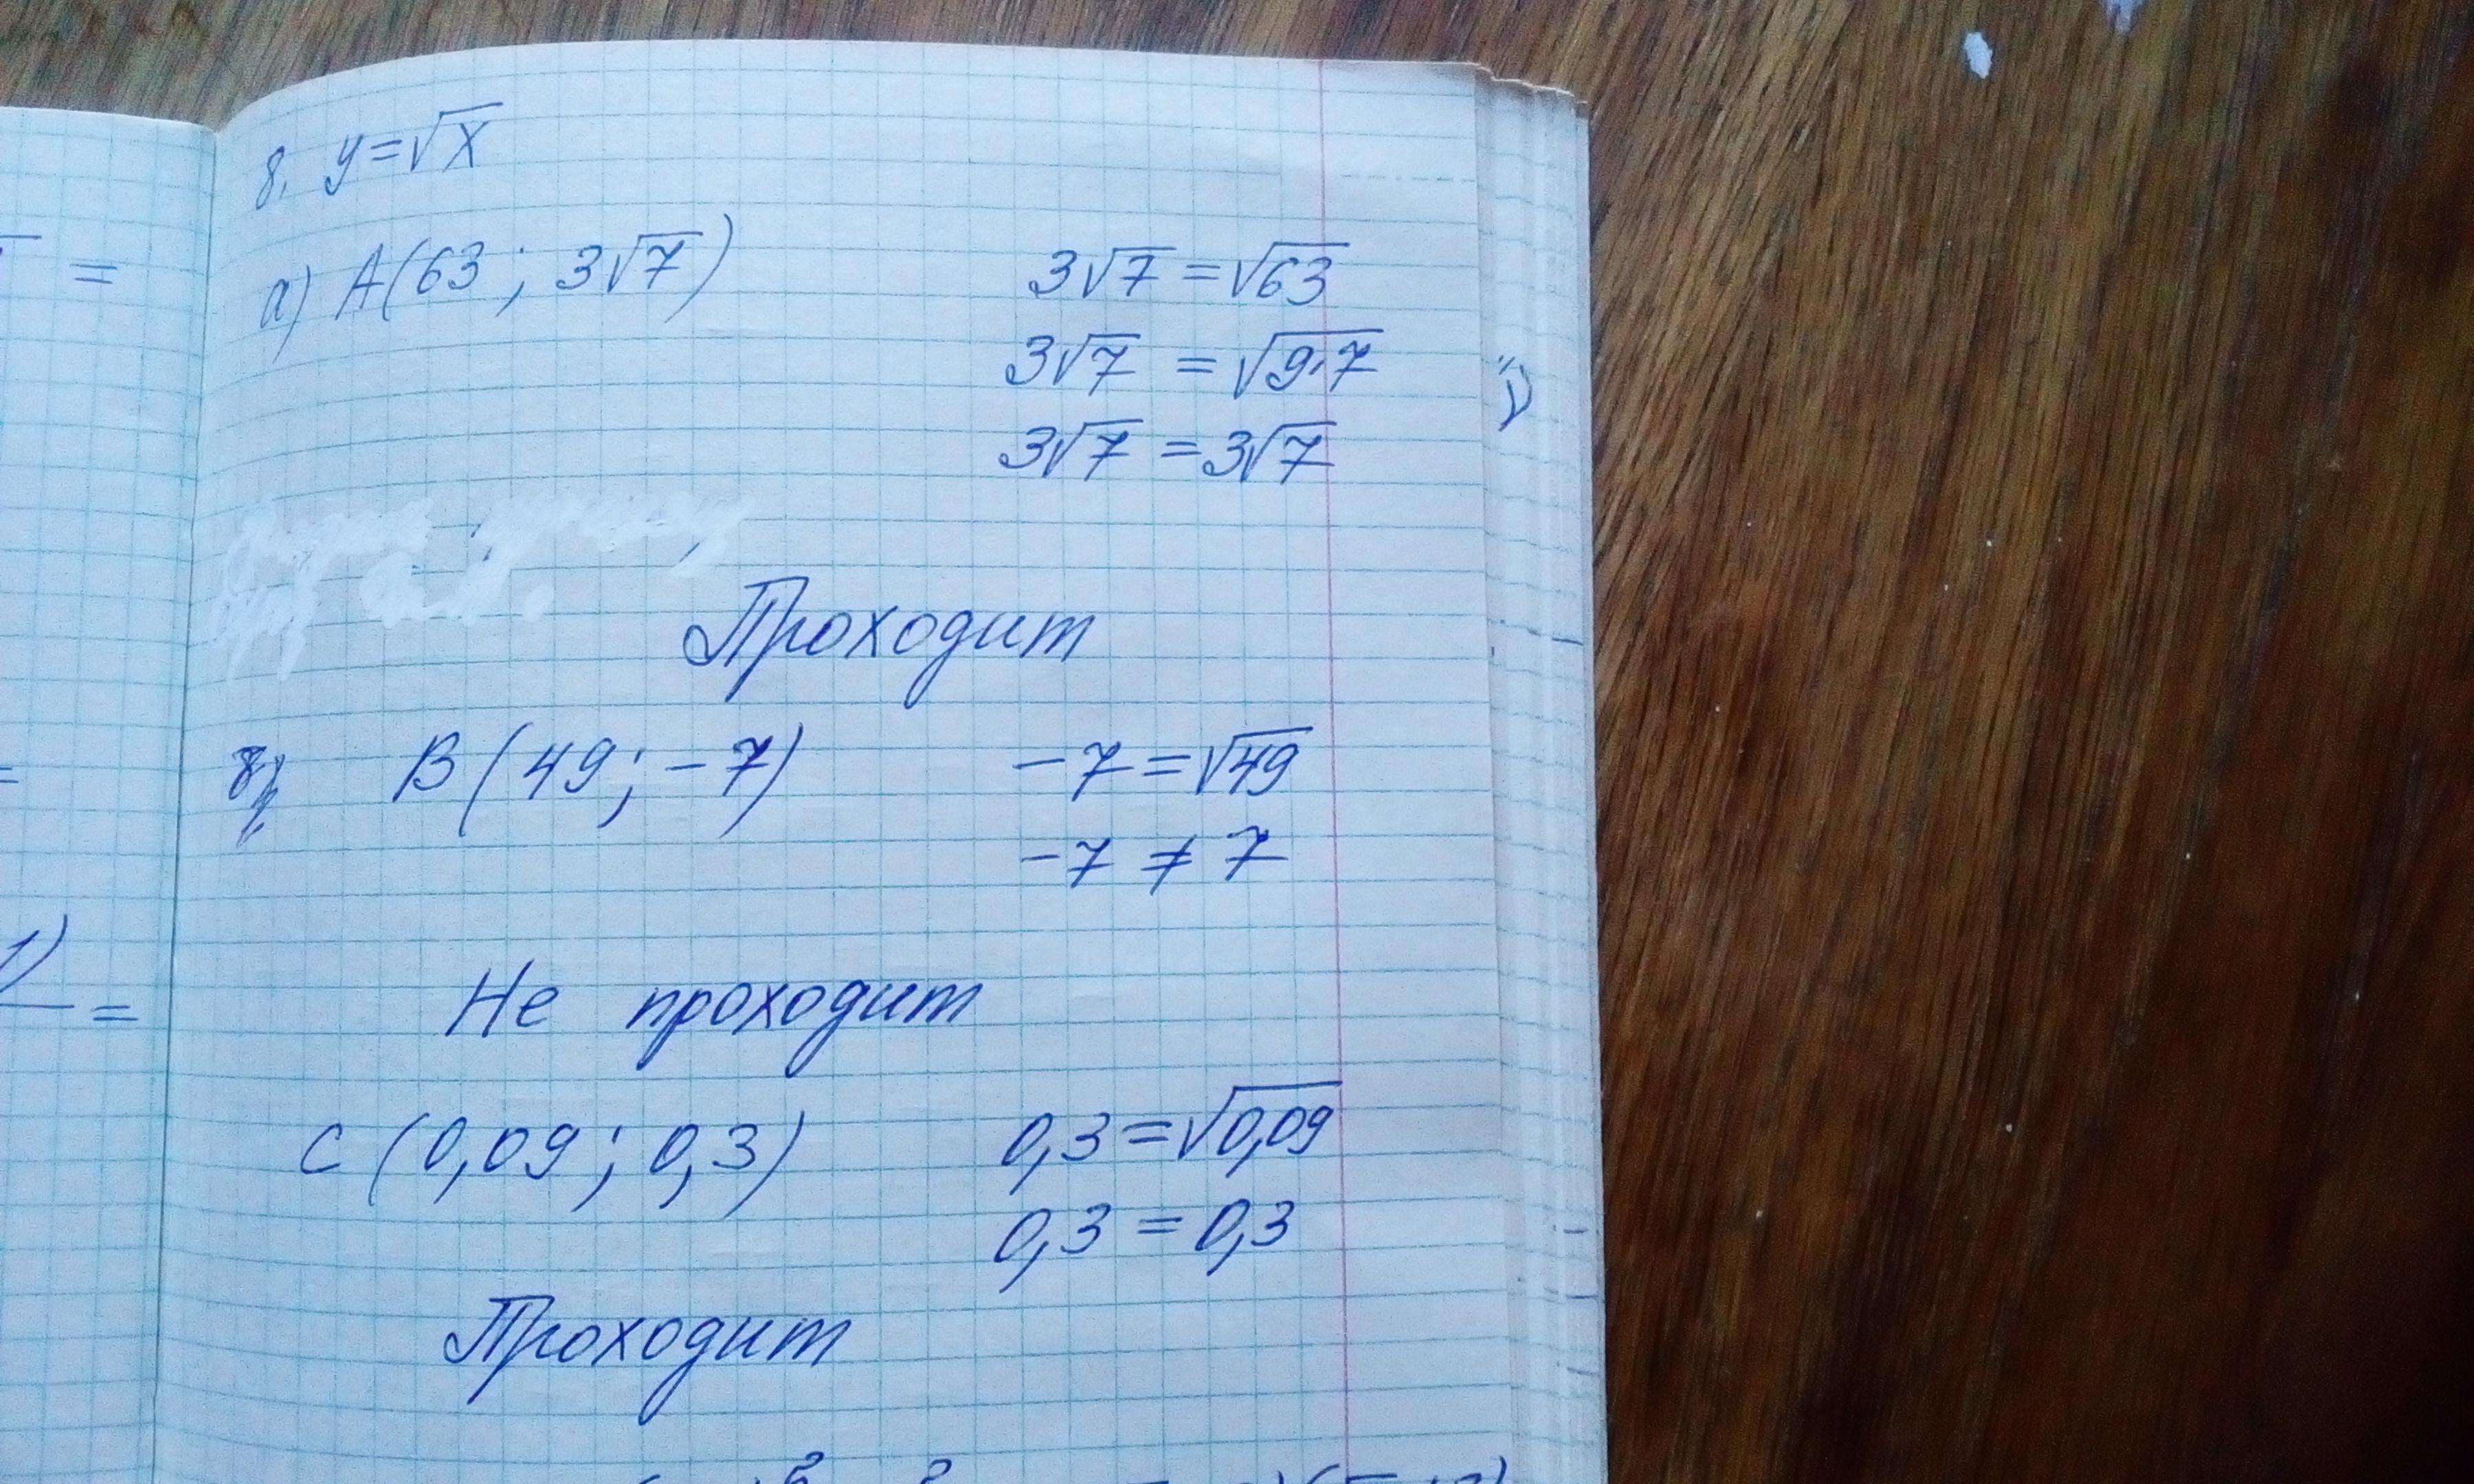 8. y=√x
а) A(63; 3√7) 3√7 = √63
3√7 = √9·7
3√7 = 3√7
Проходит
B (49; -7) -7 = √49
-7 ≠ 7
Не проходит
C (0,09; 0,3) 0,3 = √0,09
0,3 = 0,3
Проходит